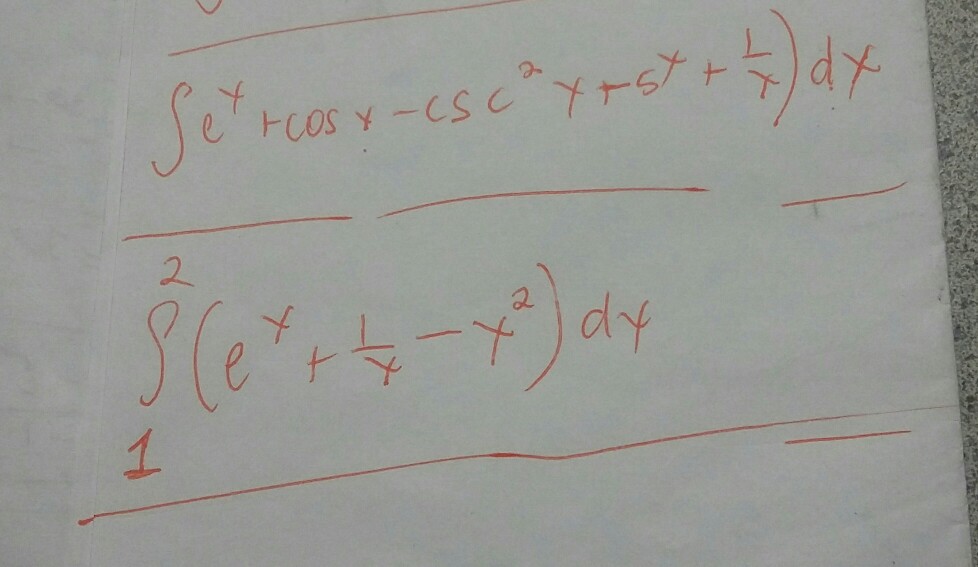 ∫e^x + cos x - csc² x + 5^x + 1/x) dx
2
∫(e^x + 1/x - x²) dx
1